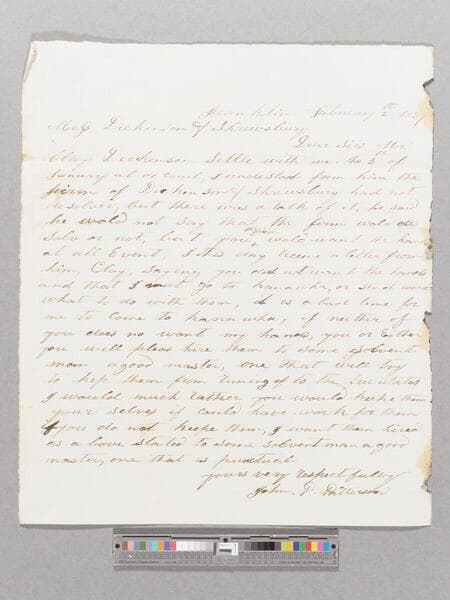 Franklin February 2th 185
Mess Dickenson & Shrewsbury
Dear Sirs Mr
Clay Dickenson Settle with me the 5th of
January at or court, I understood from him the
firm of Dickenson & Shrewsbury had not
resolve, but there was a talk of it, he said
he wold not say that the firm wold de
Salv or not, but you wold want the han
at all Event, I this day receve a letter from
him, Clay, saying you did not want the hands
and that I must go to kanawha, or send word
what to do with them, it is a bad time for
me to come to kanawha, if neither of
you does no want my hands, you or Either
you will pleas hire them to some solvent
man a good master, one that will try
to kep them from runing of to the free States
I would much rather you would keepe them
your selves if could have work for them
if you do not keepe them, I want them hired
as a bove Stated to some solvent man a good
master, one that is punctual
yours very respectfully
John. P. Patterson